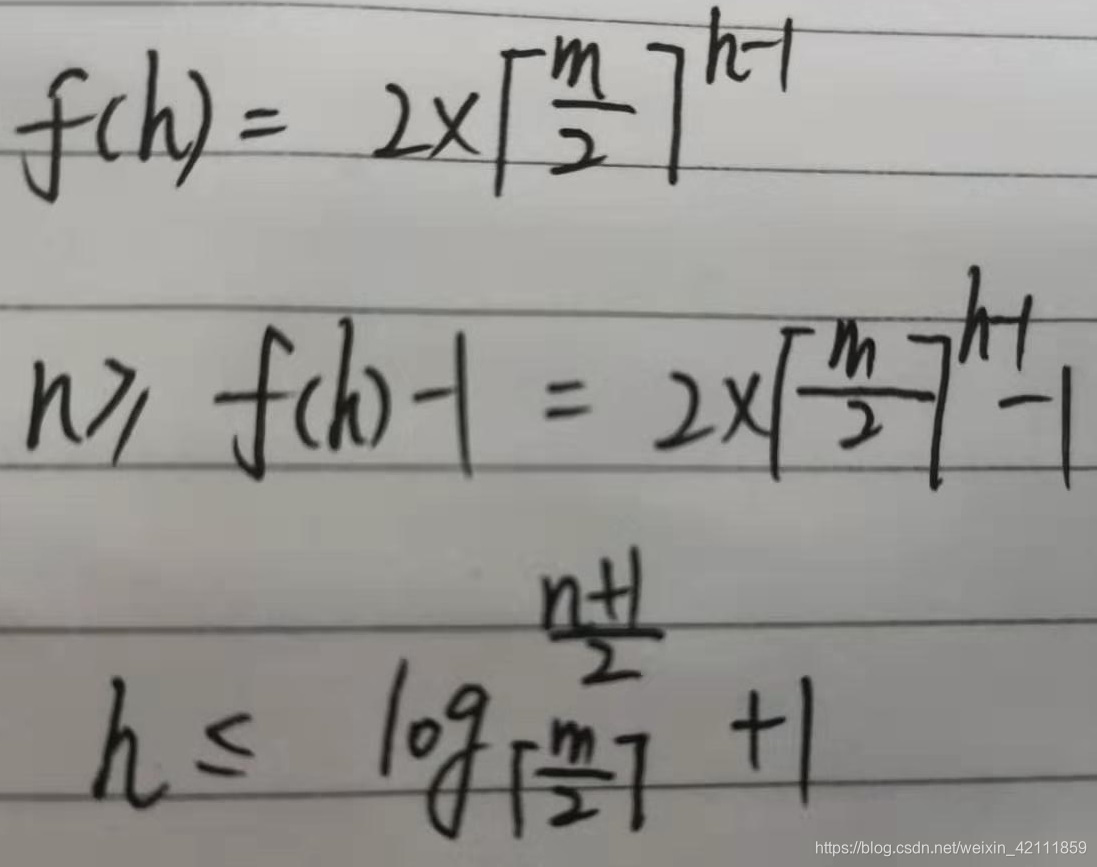 f(h) = 2×⌈m/2⌉^{h-1}
n ⩾ f(h)-1 = 2×⌈m/2⌉^{h-1} -1
h ≤ log_{⌈m/2⌉}^{(n+1)/2} +1
https://blog.csdn.net/weixin_42111859